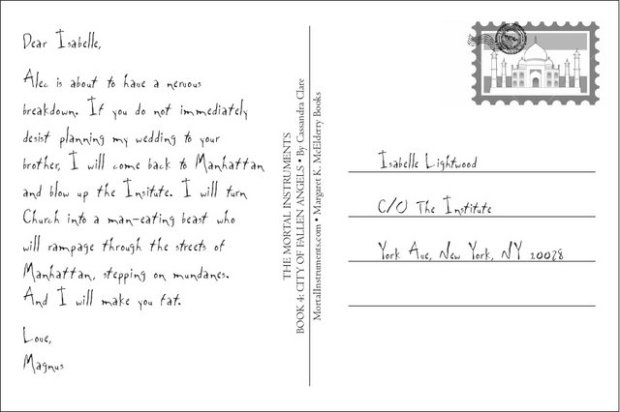 Dear Isabelle,
Alec is about to have a nervous
breakdown. If you do not immediately
desist planning my wedding to your
brother, I will come back to Manhattan
and blow up the Insitute. I will turn
Church into a man-eating beast who
will rampage through the streets of
Manhattan, stepping on mundanes.
And I will make you fat.
Love,
Magnus
THE MORTAL INSTRUMENTS
BOOK 4: CITY OF FALLEN ANGELS • By Cassandra Clare
MortalInstruments.com • Margaret K. McElderry Books
Isabelle Lightwood
C/O The Institute
York Ave, New York, NY 10028